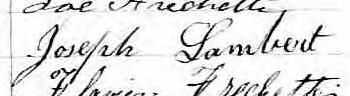 Zoe Frechette
Joseph Lambert
Flavien Frechette